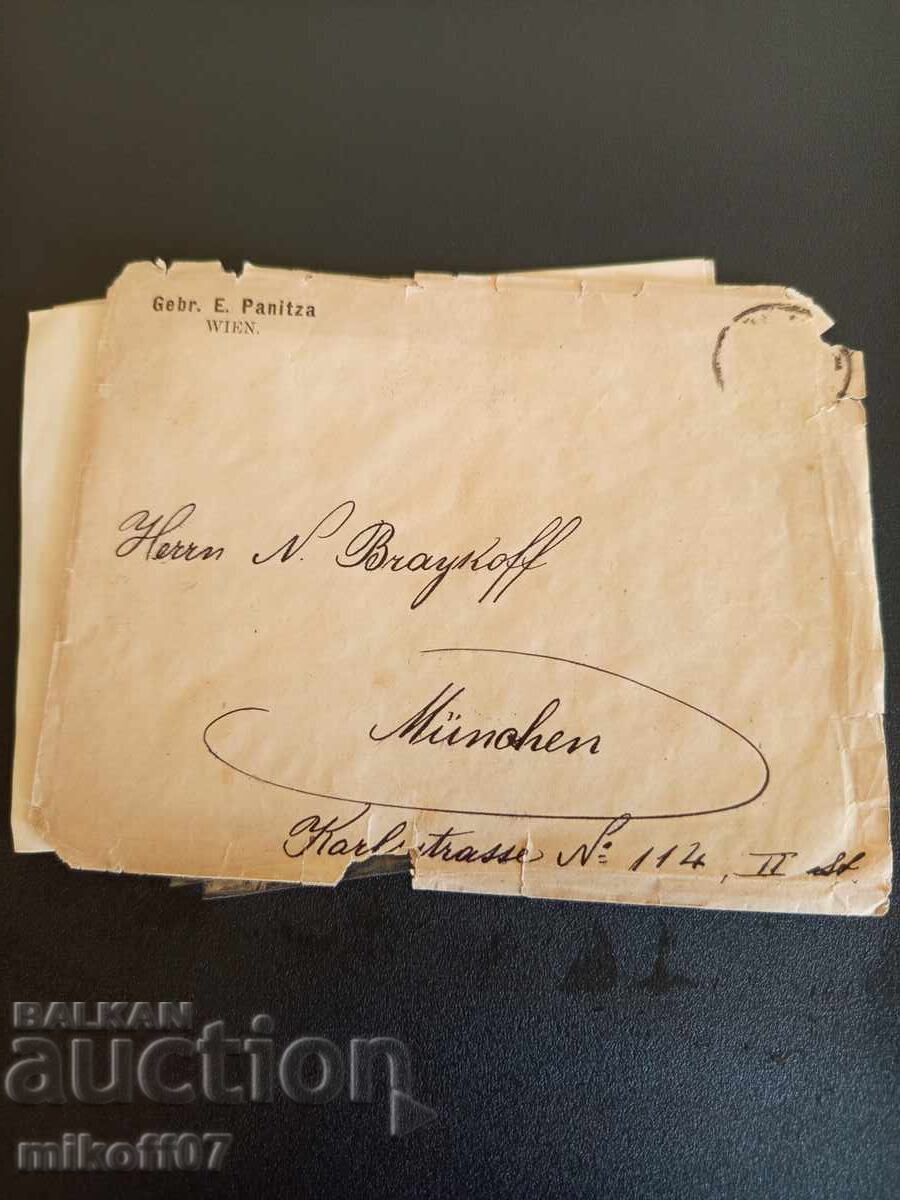 Gebr. E. Panitza
WIEN.
Herrn N. Braykoff
München
Karlstrasse No: 114, II St.
BALKAN
auction
mikoff07